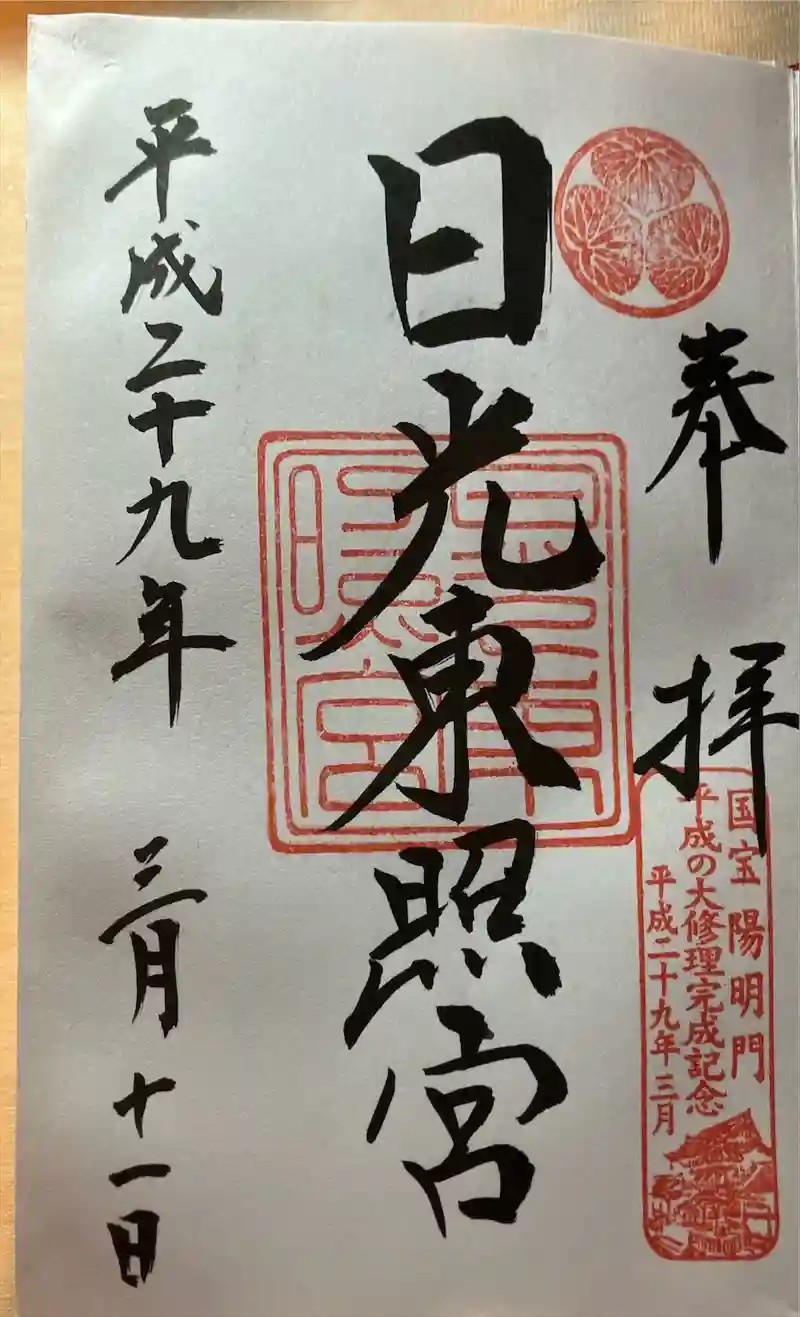 奉拝
国宝 陽明門
平成の大修理完成記念
平成二十九年三月
日光東照宮
平成二十九年 三月 十一日